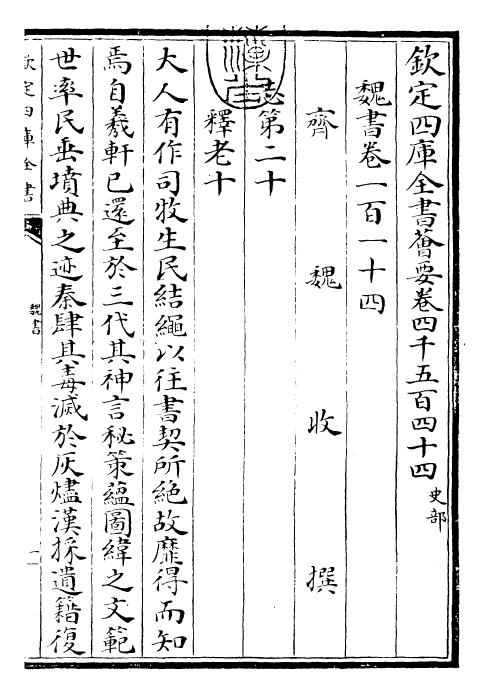 欽定四庫全書薈要卷四千五百四十四 史部
魏書卷一百一十四
齊 魏 收 撰
志第二十
釋老十
大人有作司牧生民結繩以往書契所絶故靡得而知
焉自羲軒已還至於三代其神言秘策蘊圖緯之文範
世率民垂墳典之迹秦肆其毒滅於灰燼漢採遺籍復
欽定四庫全書
魏書
一